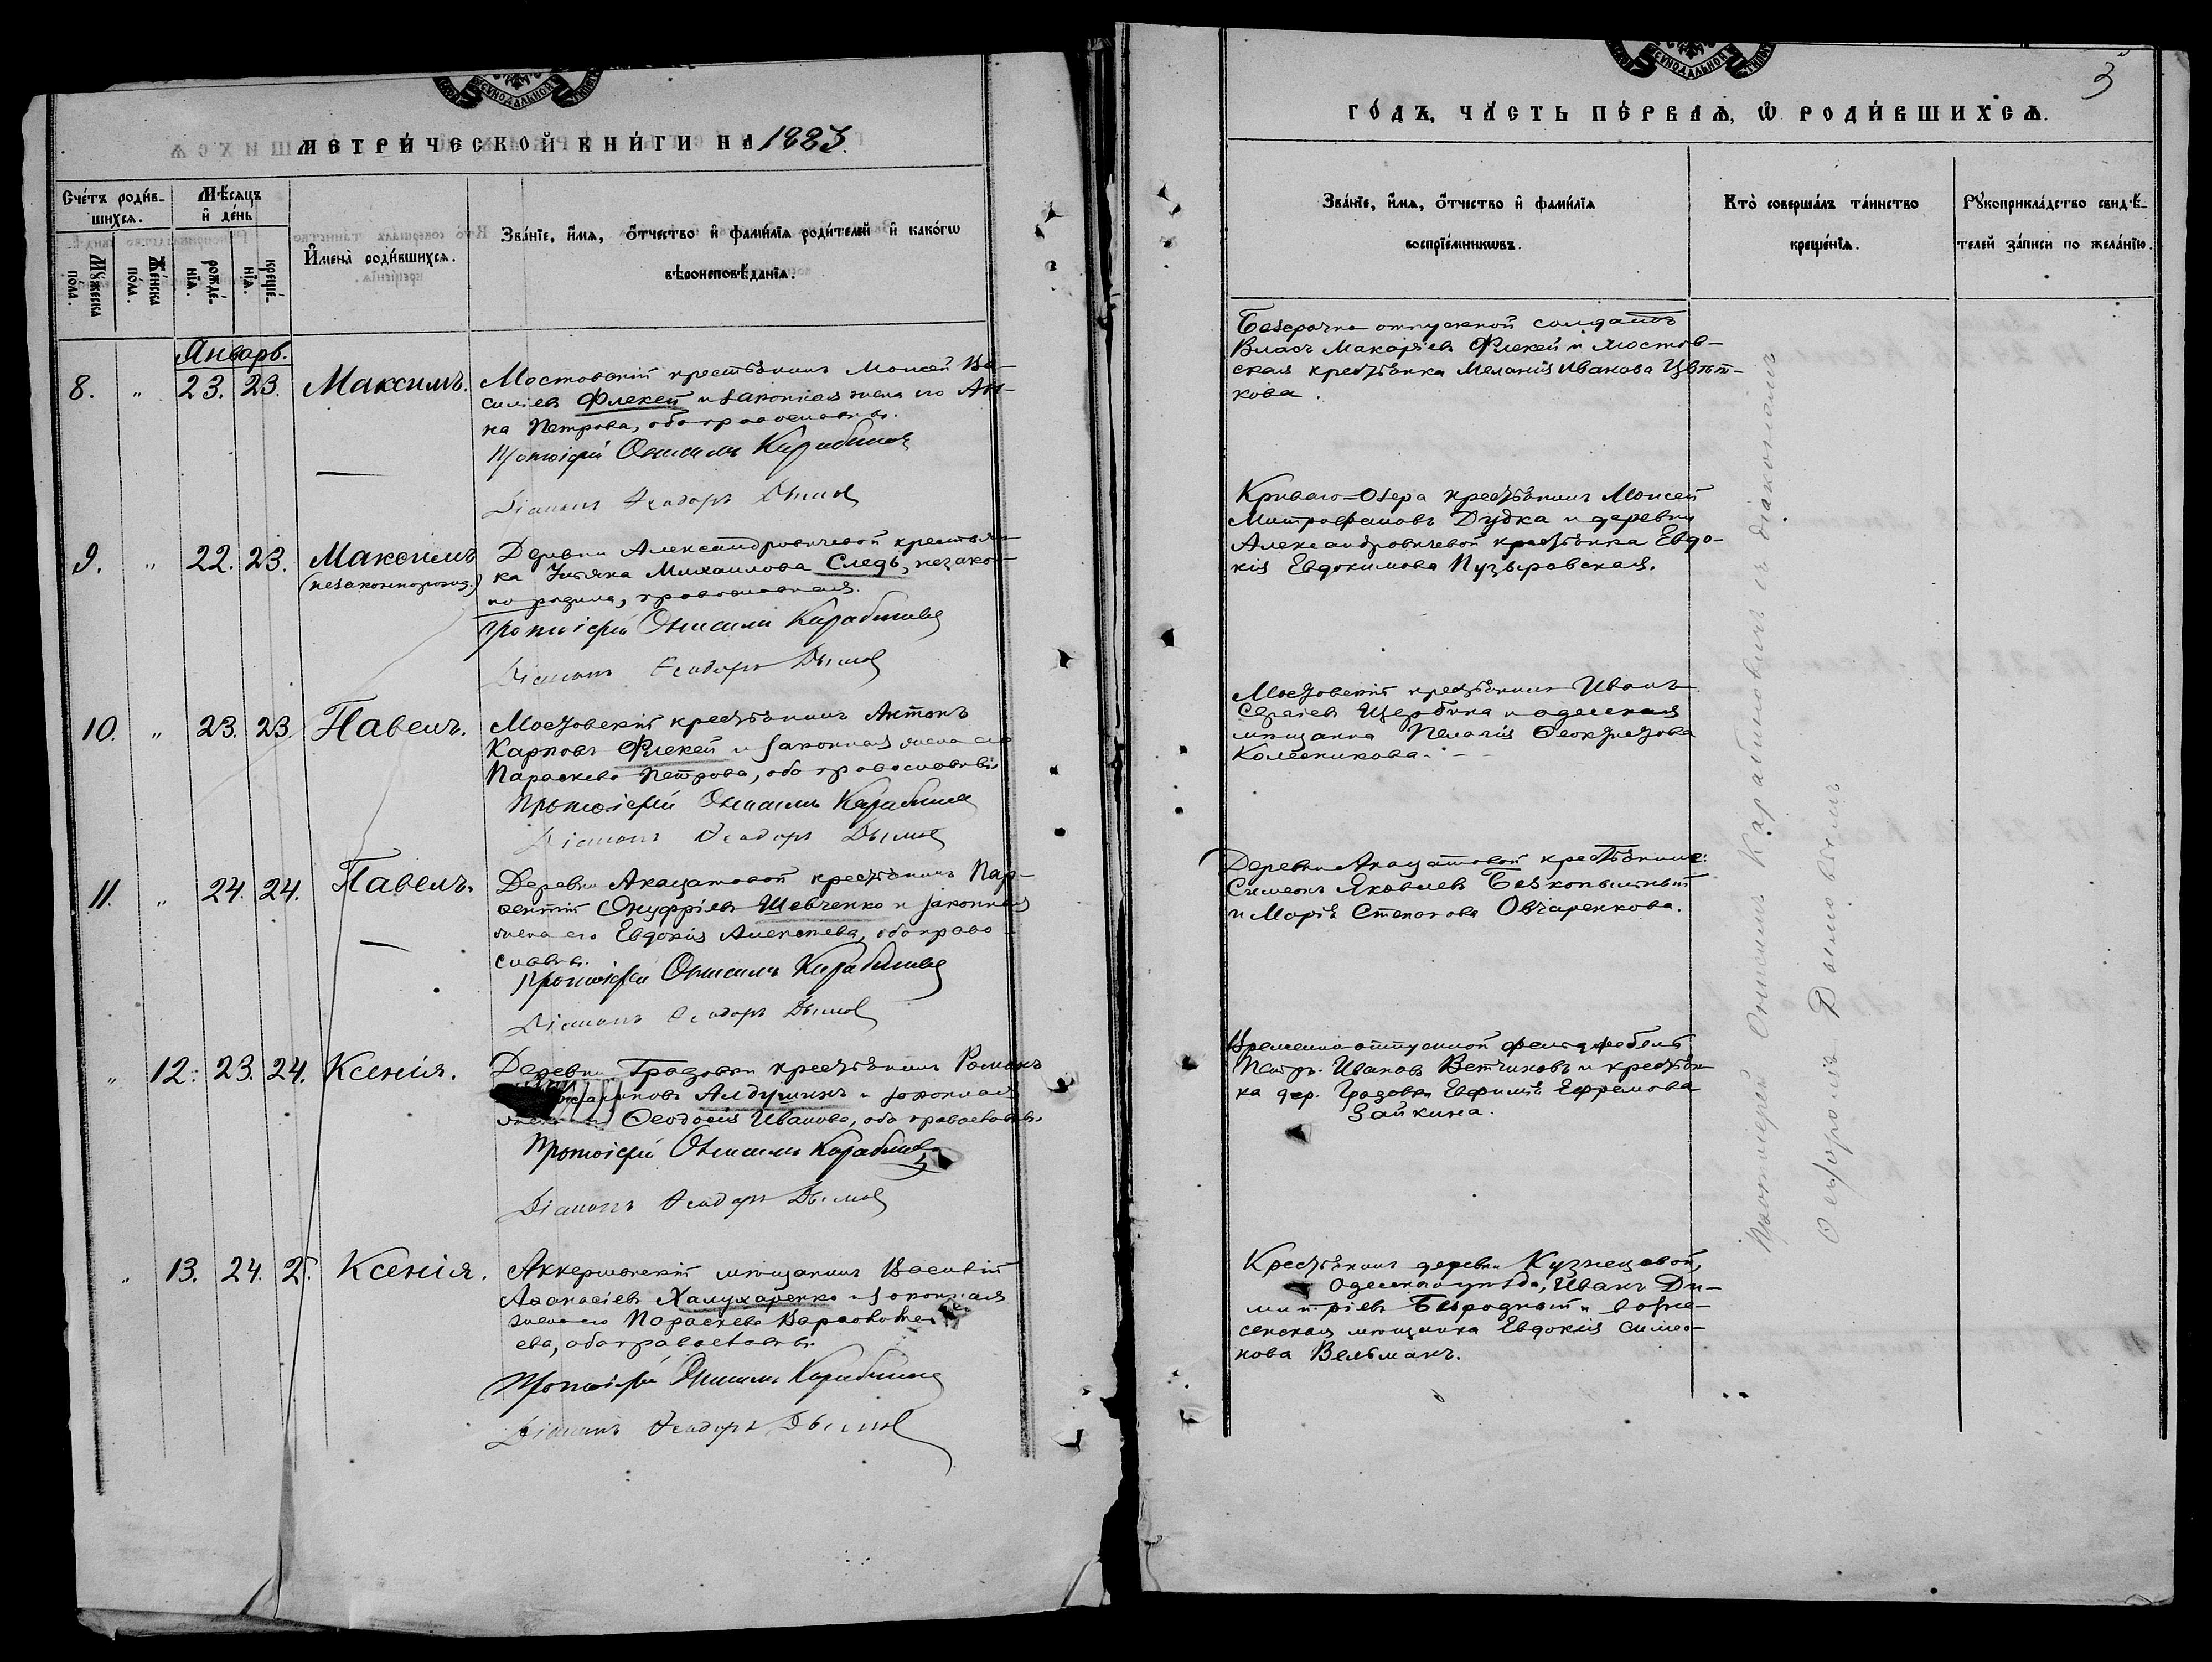 МЕТРИ́ЧЕСКОЙ КНИ́ГИ НА 1883.
Сче́тъ роди́в-
шихсѧ.
Мѣ́сѧцъ
и҆ де́нь
Мꙋ́жеска
по́ла.
Же́нска
по́ла.
рожде́-
нїѧ.
креще́-
нїѧ.
И҆мена̀ роди́вшихсѧ.
Зва́нїе, и҆́мѧ, о҆́тчество и҆ фами́лїѧ роди́телей и҆ како́гѡ
вѣроисповѣ́данїѧ.
Январь.
8. " 23. 23. Максимъ.
Мостовскій крестьянинъ Моисей Ва-
силіевъ Флекей и законная жена его Ан-
на Петрова, оба православны.
Протоіерей Онисимъ Карабиновъ
Діаконъ Ѳеодоръ Дымов
9. " 22. 23. Максимъ
(незаконнорожд.)
Деревни Александровичевой крестьян-
ка Ульяна Михаилова Следь, незакон-
но родила, православная.
Протоіерей Онисимъ Карабинов
Діаконъ Ѳеодоръ Дымов
10. " 23. 23. Павелъ.
Мостовскій крестьянинъ Антонъ
Карповъ Флекей и законная жена его
Параскева Петрова, оба православны
Протоіерей Онисимъ Карабинов
Діаконъ Ѳеодоръ Дымов
11. " 24. 24. Павелъ.
Деревни Акацатовой крестьянинъ Пар-
ѳентій Онуфріевъ Шевченко и законная
жена его Евдокія Алексѣева, оба право-
славны.
Протоіерей Онисимъ Карабинов
Діаконъ Ѳеодоръ Дымов
" 12. 23. 24. Ксенія.
Деревни Градовки крестьянинъ Романъ
Алдушинъ и законная
жена Ѳеодосія Иванова, оба православны.
Протоіерей Онисимъ Карабинов
Діаконъ Ѳеодоръ Дымов
" 13. 24. 2 Ксенія.
Аккерманскій мѣщанинъ Василій
Аѳанасіевъ Халухаренко и законная
жена его Параскева Варѳоломе-
ева, оба православны.
Протоіерей Онисимъ Карабинов
Діаконъ Ѳеодоръ Дымов
3
ГО́ДЪ, ЧА́СТЬ ПЕ́РВАѦ, Ѡ҆ РОДИ́ВШИХСѦ.
Зва́нїе, и҆́мѧ, о҆́тчество и҆ фами́лїѧ
воспрїе́мникѡвъ.
Кто̀ соверша́лъ та́инство
креще́нїѧ.
Рꙋкоприкла́дство свидѣ́-
телей за́писи по жела́нїю.
Безсрочно отпускной солдатъ
Власъ Макаріевъ Флекей и мостов-
ская крестьянка Меланія Иванова Цвѣт-
кова.
Криваго-Озера крестьянинъ Моисей
Митрофановъ Дудка и деревни
Александровичевой крестьянка Евдо-
кія Евдокимова Пузыревская.
Мостовскій крестьянинъ Иванъ
Сергіевъ Щербина и одесская
мѣщанка Пелагія Ѳеоктистова
Колесникова.
Деревни Акацатовой крестьянинъ
Симеонъ Яковлевъ Безкопыльный
и Марія Степанова Овчаренкова.
Временно отпускной фельдфебель
Петръ Ивановъ Ветчиновъ и крестьян-
ка дер. Градовки Евфимія Ефремова
Зайкина.
Крестьянинъ деревни Кузнецовой,
Одесскаго уѣзда, Иванъ Ди-
митріевъ Безродный и возне-
сенская мѣщанка Евдокія Симео-
нова Вельманъ.
Протоіерей Онисимъ Карабиновичъ съ діакономъ
Ѳеодоромъ Дымовымъ